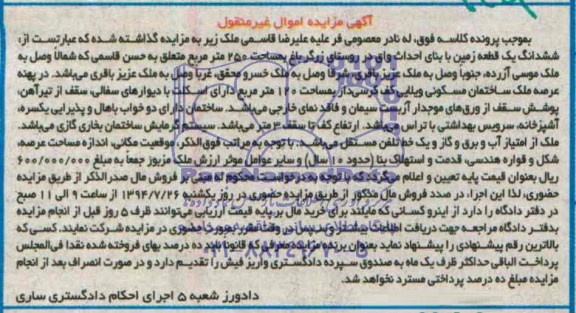 آگهی مزایده اموال غیرمنقول
بموجب پرونده کلاسه فوق، له نادر معصومی فر علیه علیرضا قاسمی ملک زیر به مزایده گذاشته شده که عبارتست از:
ششدانگ یک قطعه زمین با بنای احداث واقع در روستای زرگرباغ بمساحت ۲۵۰ متر مربع متعلق به حسن قاسمی که شمالاً وصل به
ملک موسی آزرده، جنوباً وصل به ملک عزیز باقری، شرقاً وصل به ملک خسرو محقق، غرباً وصل به ملک عزیز باقری می‌باشد. در پهنه
عرصه ملک ساختمان مسکونی ویلایی کف کرسی‌دار بمساحت ۱۲۰ متر مربع دارای اسکلت با دیوارهای سفالی، سقف از تیرآهن،
پوشش سقف از ورق‌های موجدار آربست سیمان و فاقد نمای خارجی می‌باشد. ساختمان دارای دو خواب باهال و پذیرایی یکسره،
آشپزخانه، سرویس بهداشتی با تراس می‌باشد. ارتفاع کف تا سقف ۳ متر می‌باشد. سیستم گرمایش ساختمان بخاری گازی می‌باشد.
ملک از امتیاز آب و برق و گاز و یک خط تلفن مستقل می‌باشد. با توجه به مراتب فوق‌الذکر، موقعیت مکانی، اندازه مساحت عرصه،
شکل و قواره هندسی، قدمت و استهلاک بنا (حدود ۱۰ سال) و سایر عوامل موثر ارزش ملک مزبور جمعاً به مبلغ ۶۰۰/۰۰۰/۰۰۰
ریال بعنوان قیمت پایه تعیین و اعلام می‌گردد که با توجه به درخواست محکوم له مبنی بر فروش مال صدرالذکر از طریق مزایده
حضوری، لذا این اجرا، در صدد فروش مال مذکور از طریق مزایده حضوری در روز یکشنبه ۱۳۹۴/۷/۲۶ از ساعت ۹ الی ۱۱ صبح
در دفتر دادگاه را دارد از اینرو کسانی که مایلند برای خرید مال بر پایه قیمت ارزیابی می‌توانند ظرف ۵ روز قبل از انجام مزایده
بدفتر دادگاه مراجعه جهت دریافت اطلاعات بیشتر و بازدید در وقت مقرر بصورت حضوری در مزایده شرکت نمایند. کسی که
بالاترین رقم پیشنهادی را پیشنهاد نماید بعنوان برنده مزایده معرفی که قانوناً باید ده درصد بهای فروخته شده نقدا فی‌المجلس
پرداخت الباقی حداکثر ظرف یک ماه به صندوق سپرده دادگستری واریز فیش را تقدیم دارد و در صورت انصراف بعد از انجام
مزایده مبلغ ده درصد پرداختی مسترد نخواهد شد.
دادورز شعبه ۵ اجرای احکام دادگستری ساری